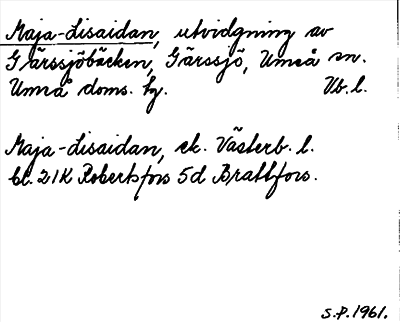 Maja-Lisaidan, utvidgning av
Gärssjöbäcken, Gärssjö, Umeå sn.
Umeå doms. hg. Vb. l.
Maja-Lisaidan, ek. Västerb. l.
bl. 21K Robertsfors 5d Brattfors.
S.P. 1961.